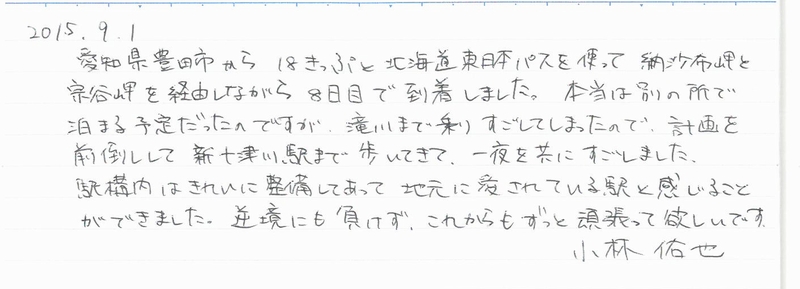 2015.9.1
愛知県豊田市から 18きっぷと北海道東日本パスを使って 納沙布岬と
宗谷岬を経由しながら 8日目で到着しました。本当は別の所で
泊まる予定だったのですが、滝川まで乗りすごしてしまったので、計画を
前倒しして 新十津川駅まで歩いてきて、一夜を共にすごしました。
駅構内はきれいに整備してあって 地元に愛されている駅と感じること
ができました。逆境にも負けず、これからもずっと頑張って欲しいです
小林佑也